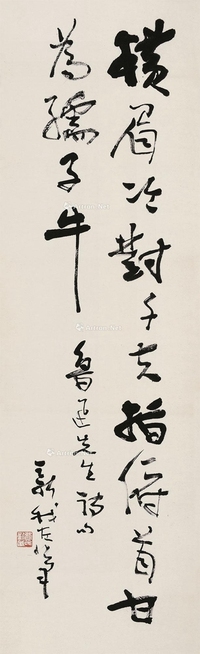 横眉冷對千夫指俯首甘
為孺子牛
魯迅先生詩句